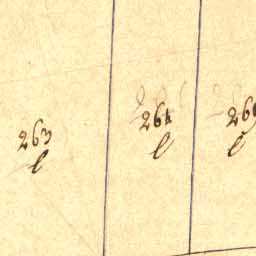 263
l
264
l
l